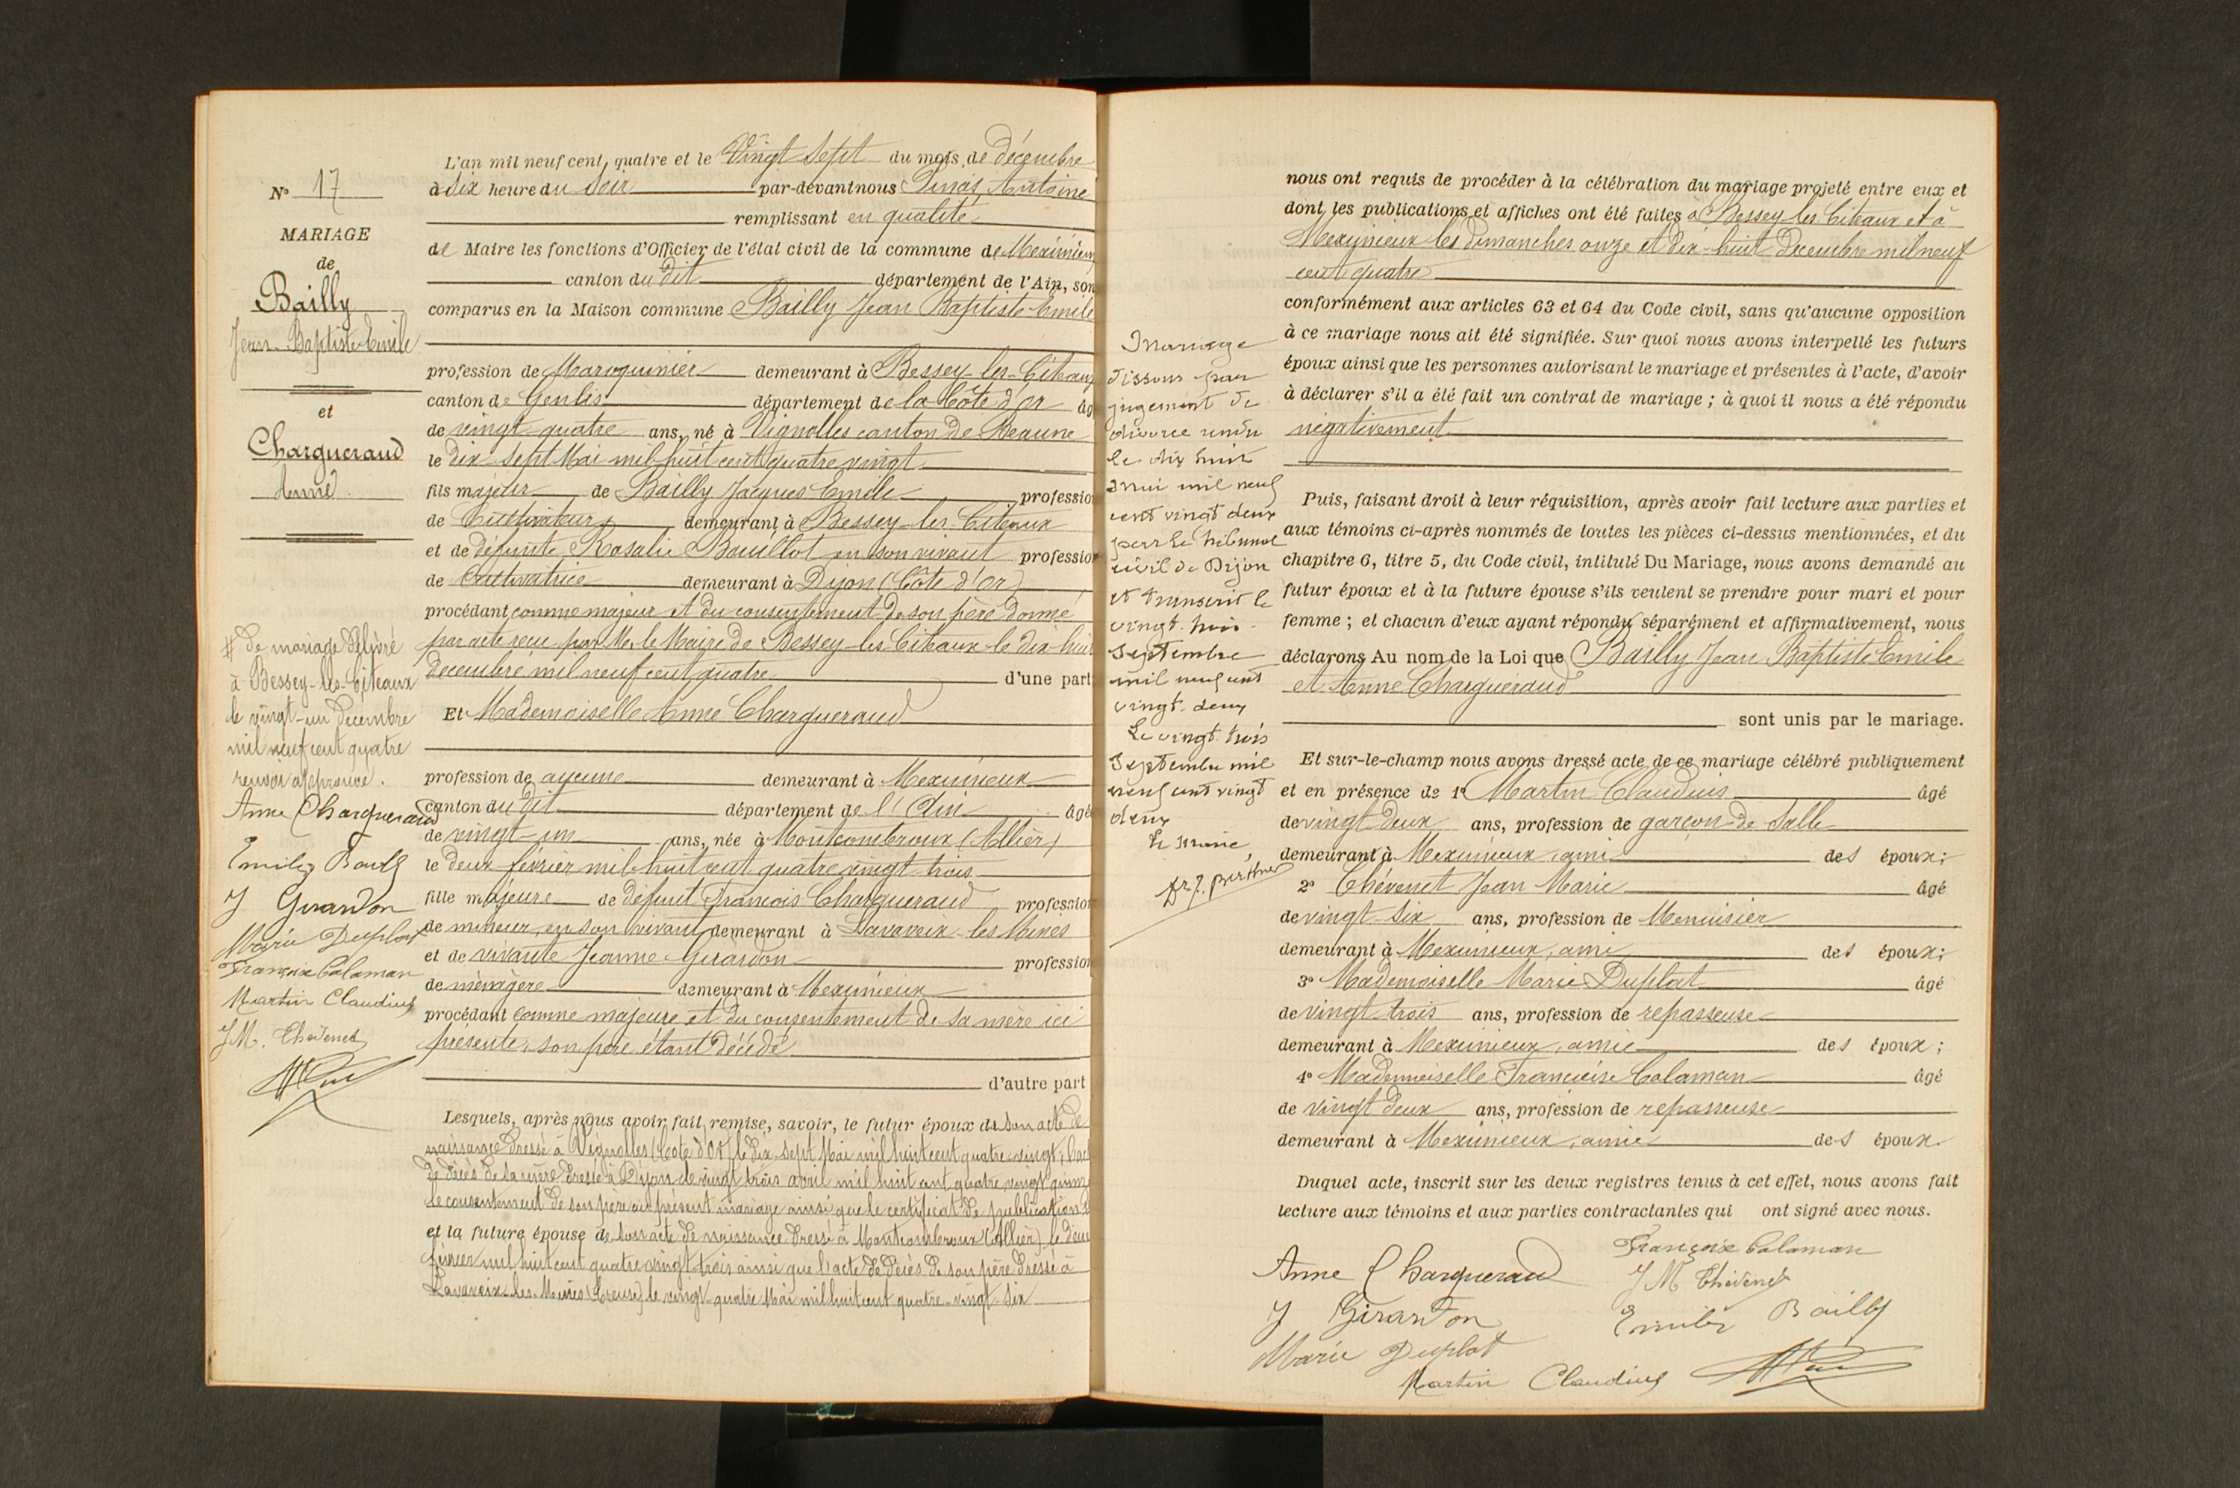 N° 17
MARIAGE
de
Bailly
Jean-Baptiste Emile
et
Chargueraud
Anne
L'an mil neuf cent quatre et le Vingt Sept du mois de décembre
à Six heure du Soir par-devant nous Antoine
remplissant en qualité
de Maire les fonctions d'Officier de l'état civil de la commune de Meximieux
canton du dit département de l'Ain, son
comparus en la Maison commune Bailly Jean Baptiste Emile
profession de Maroquinier demeurant à Bessey-les-Citeaux
canton de Genlis département de la Côte d'Or âg
de vingt quatre ans, né à Vignolles canton de Beaune
le dix-sept Mai mil huit cent quatre vingt
fils majeur de Bailly Jacques Emile profession
de Cultivateur demeurant à Bessey-les-Citeaux
et de défunte Rosalie Bouillot en son vivant profession
de Cultivatrice demeurant à Dijon (Côte d'Or)
procédant comme majeur et du consentement de son père donné
par acte reçu par Mr le Maire de Bessey-les-Citeaux le dix-huit
décembre mil neuf cent quatre d'une part
Et Mademoiselle Anne Chargueraud
profession de aucune demeurant à Meximieux
canton du dit département de l'Ain âgé
de vingt-un ans, née à Montcombroux (Allier)
le deux février mil huit cent quatre vingt trois
fille majeure de défunt François Chargueraud profession
de mineur en son vivant demeurant à Lavaveix-les-Mines
et de vivante Jeanne Girardon profession
de ménagère demeurant à Meximieux
procédant comme majeure et du consentement de sa mère ici
présente, son père étant décédé
d'autre part
Lesquels, après nous avoir fait remise, savoir, le futur époux de son acte de
naissance dressé à Vignolles (Côte d'Or) le dix-sept Mai mil huit cent quatre-vingt, l'acte
de décès de sa mère dressé à Dijon le vingt trois avril mil huit cent quatre vingt quinze
le consentement de son père au présent mariage ainsi que le certificat de publication #
et la future épouse de son acte de naissance dressé à Montcombroux (Allier) le deux
février mil huit cent quatre vingt trois ainsi que l'acte de décès de son père dressé à
Lavaveix-les-Mines (Creuse) le vingt-quatre Mai mil huit cent quatre-vingt-six
# de mariage délivré
à Bessey-les-Citeaux
le vingt-un décembre
mil neuf cent quatre
renvoi approuvé.
Anne Chargueraud
Emile Bailly
J Girardon
Marie Duplat
Françoise Calaman
Martin Claudius
J M. Thévenet
Mariage
dissous par
jugement de
divorce rendu
le dix huit
mai mil neuf
cent vingt deux
par le tribunal
civil de Dijon
et transcrit le
vingt-trois
Septembre
mil neuf cent
vingt-deux
Le vingt trois
Septembre mil
neuf cent vingt
deux
Le Maire,
nous ont requis de procéder à la célébration du mariage projeté entre eux et
dont les publications et affiches ont été faites à Bessey les Citeaux et à
Meximieux les dimanches onze et dix-huit décembre mil neuf
cent quatre
conformément aux articles 63 et 64 du Code civil, sans qu'aucune opposition
à ce mariage nous ait été signifiée. Sur quoi nous avons interpellé les futurs
époux ainsi que les personnes autorisant le mariage et présentes à l'acte, d'avoir
à déclarer s'il a été fait un contrat de mariage ; à quoi il nous a été répondu
négativement
Puis, faisant droit à leur réquisition, après avoir fait lecture aux parties et
aux témoins ci-après nommés de toutes les pièces ci-dessus mentionnées, et du
chapitre 6, titre 5, du Code civil, intitulé Du Mariage, nous avons demandé au
futur époux et à la future épouse s'ils veulent se prendre pour mari et pour
femme ; et chacun d'eux ayant répondu séparément et affirmativement, nous
déclarons Au nom de la Loi que Bailly Jean Baptiste Emile
et Anne Chargueraud
sont unis par le mariage.
Et sur-le-champ nous avons dressé acte de ce mariage célébré publiquement
et en présence de 1° Martin Claudius âgé
de vingt deux ans, profession de garçon de Salle
demeurant à Meximieux, ami des époux ;
2° Chévenet Jean Marie âgé
de vingt-six ans, profession de Menuisier
demeurant à Meximieux, ami des époux ;
3° Mademoiselle Marie Duplat âgé
de vingt-trois ans, profession de repasseuse
demeurant à Meximieux, amie des époux ;
4° Mademoiselle Françoise Calaman âgé
de vingt deux ans, profession de repasseuse
demeurant à Meximieux, amie des époux.
Duquel acte, inscrit sur les deux registres tenus à cet effet, nous avons fait
lecture aux témoins et aux parties contractantes qui ont signé avec nous.
Anne Chargueraud
Françoise Calaman
J M Thévenet
J Girardon
Emile Bailly
Marie Duplat
Martin Claudius